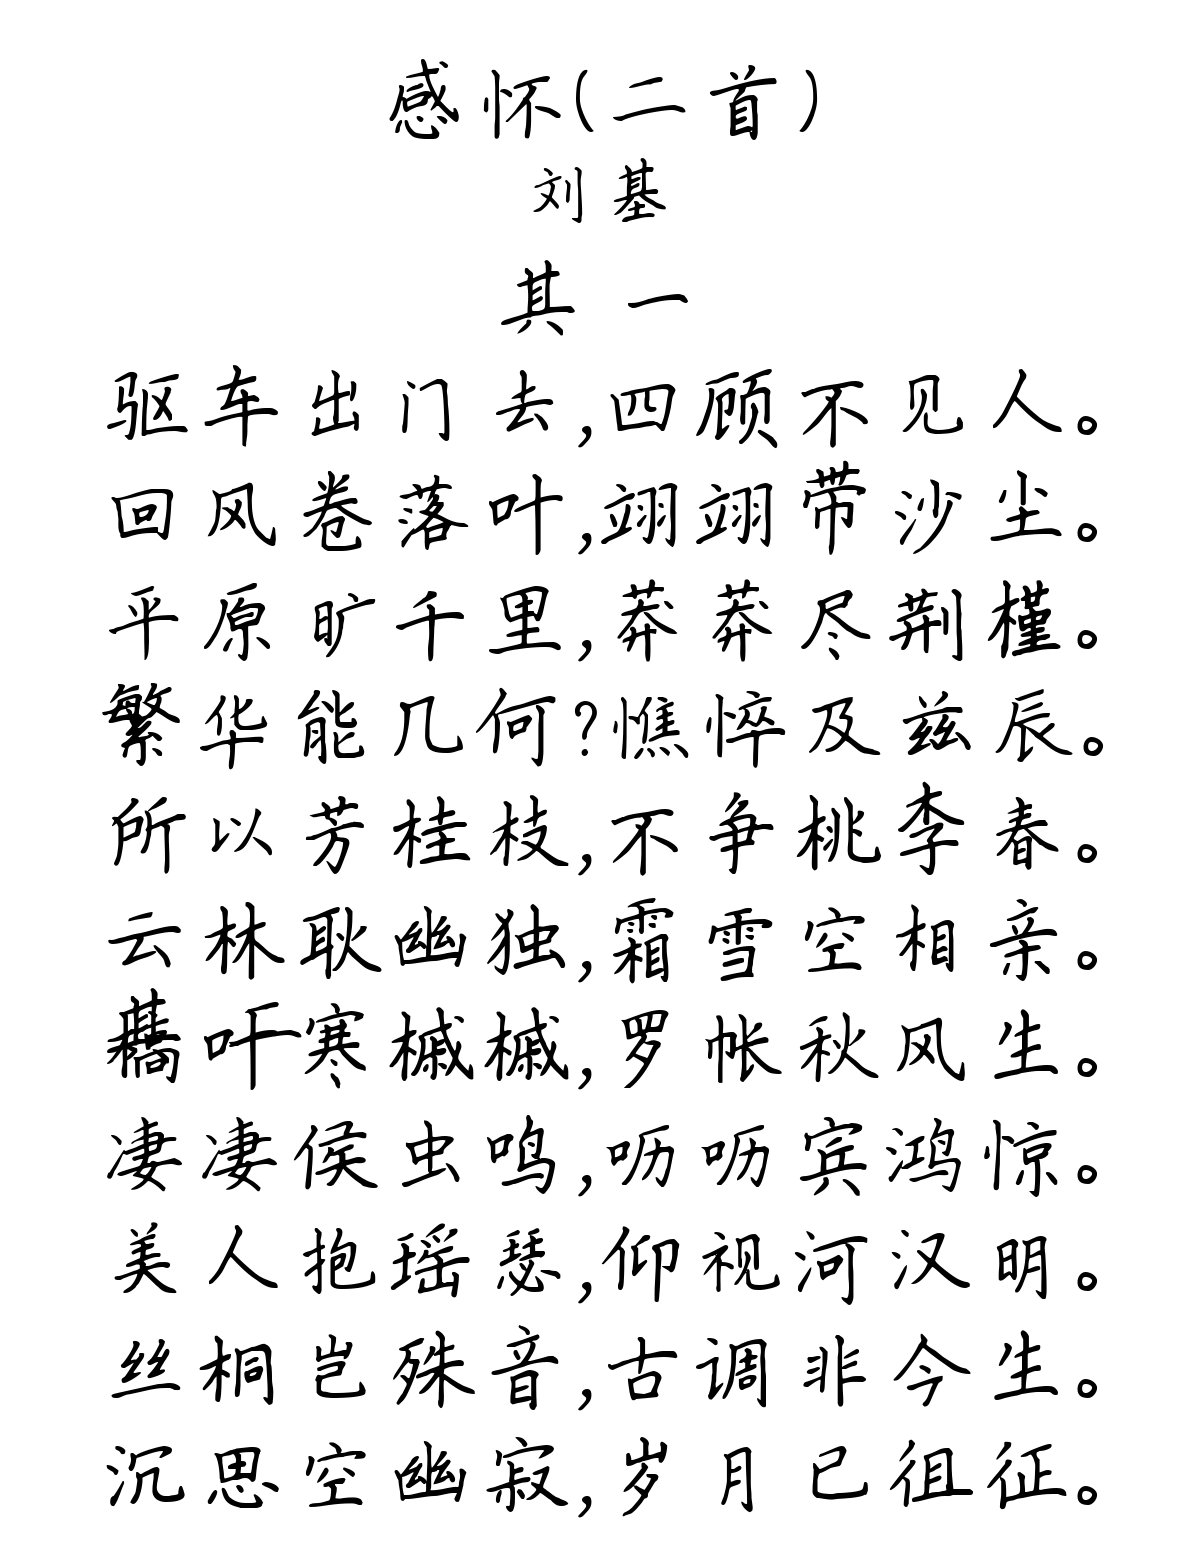 感怀(二首)
刘基
其一
驱车出门去,四顾不见人。
回风卷落叶,翊翊带沙尘。
平原旷千里,莽莽尽荆槿。
繁华能几何?憔悴及兹辰。
所以芳桂枝,不争桃李春。
云林耿幽独,霜雪空相亲。
藒叶寒槭槭,罗帐秋风生。
凄凄侯虫鸣,呖呖宾鸿惊。
美人抱瑶瑟,仰视河汉明。
丝桐岂殊音,古调非今生。
沉思空幽寂,岁月已徂征。